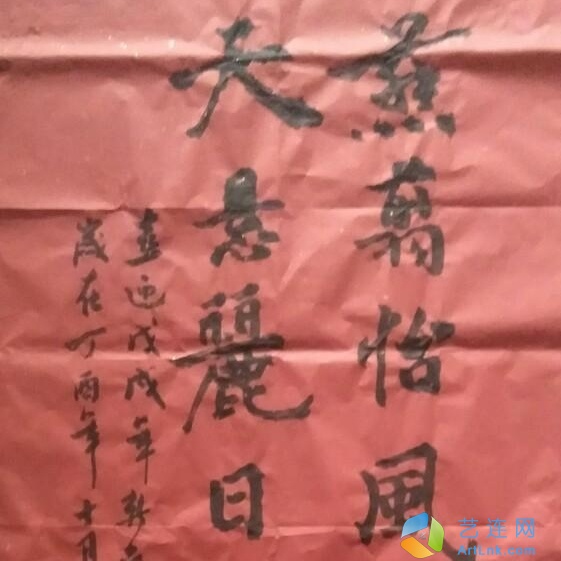 燕翦怡風
天悬麗日
喜迎戊戌年新
歲在丁酉年十月
艺连网
ArtLnk.com